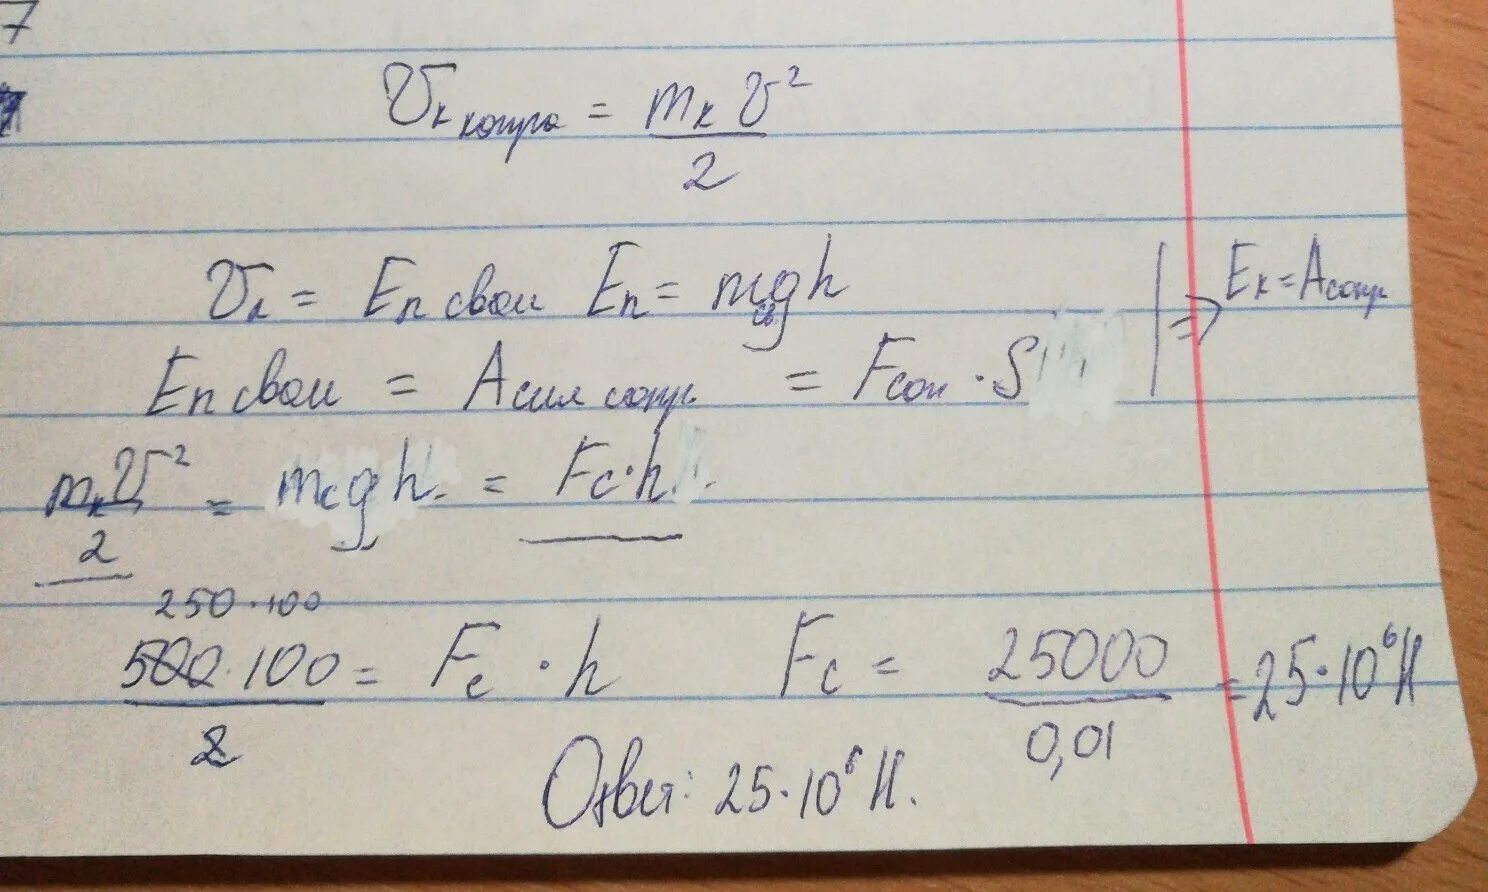 7
U_к копра = m_к υ² / 2
U_к = E_п сваи E_п = m_св. gh
E_п сваи = A сил сопр. = F_соп · S | ⇒ E_к = A_сопр
m_к U² / 2 = m_с gh = F_c · h
250 · 100
500 · 100 / 2 = F_c · h F_c = 25000 / 0,01 = 25 · 10⁶ Н
Ответ: 25 · 10⁶ Н.